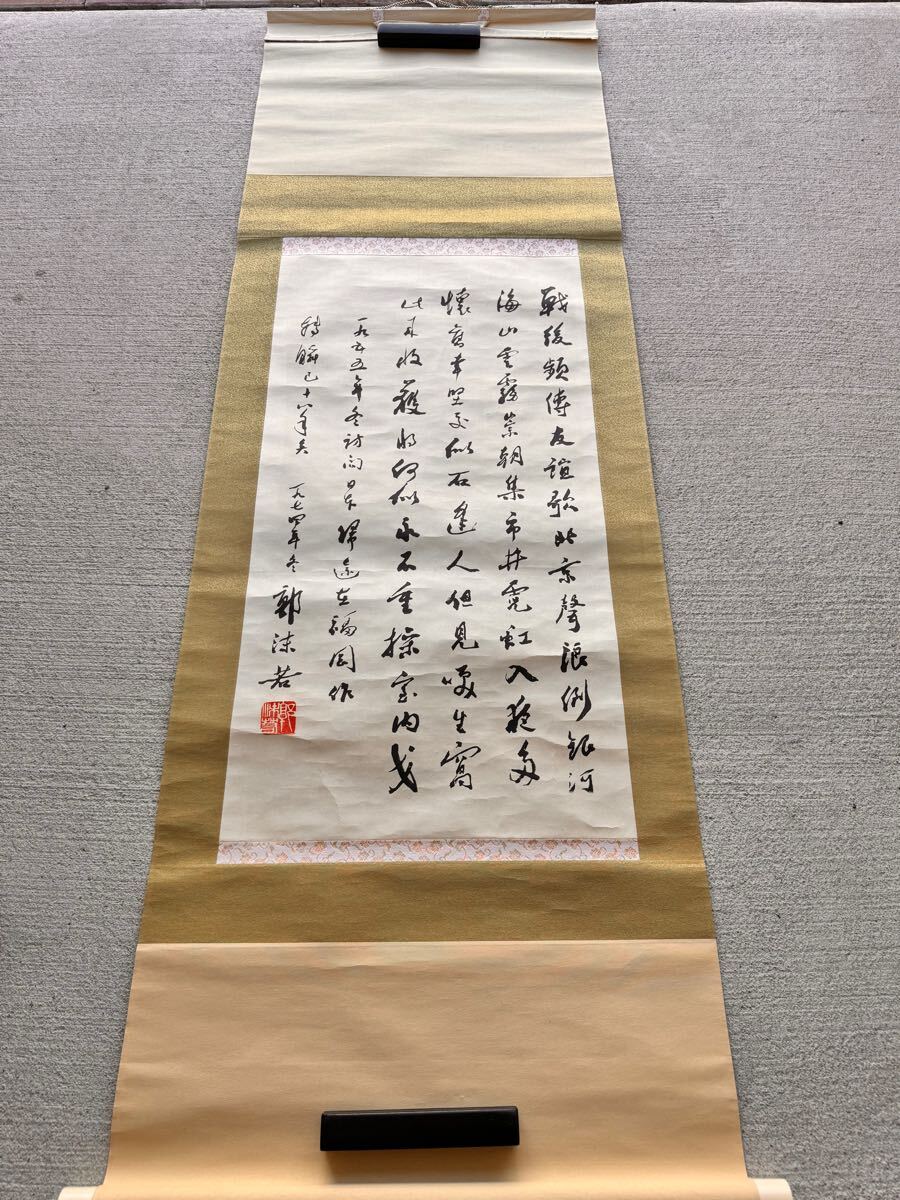 戰後頻傳友誼歌北京聲浪倒銀河
海山雲霧崇朝集市井霓虹入夜多
懷舊幸堅交似石逢人但見咲生窩
此來收穫將何似永不重操室内戈
一九五五年冬訪問日本歸途在福岡作
轉瞬已十八年矣 一九七四年冬 郭沫若
郭沫若